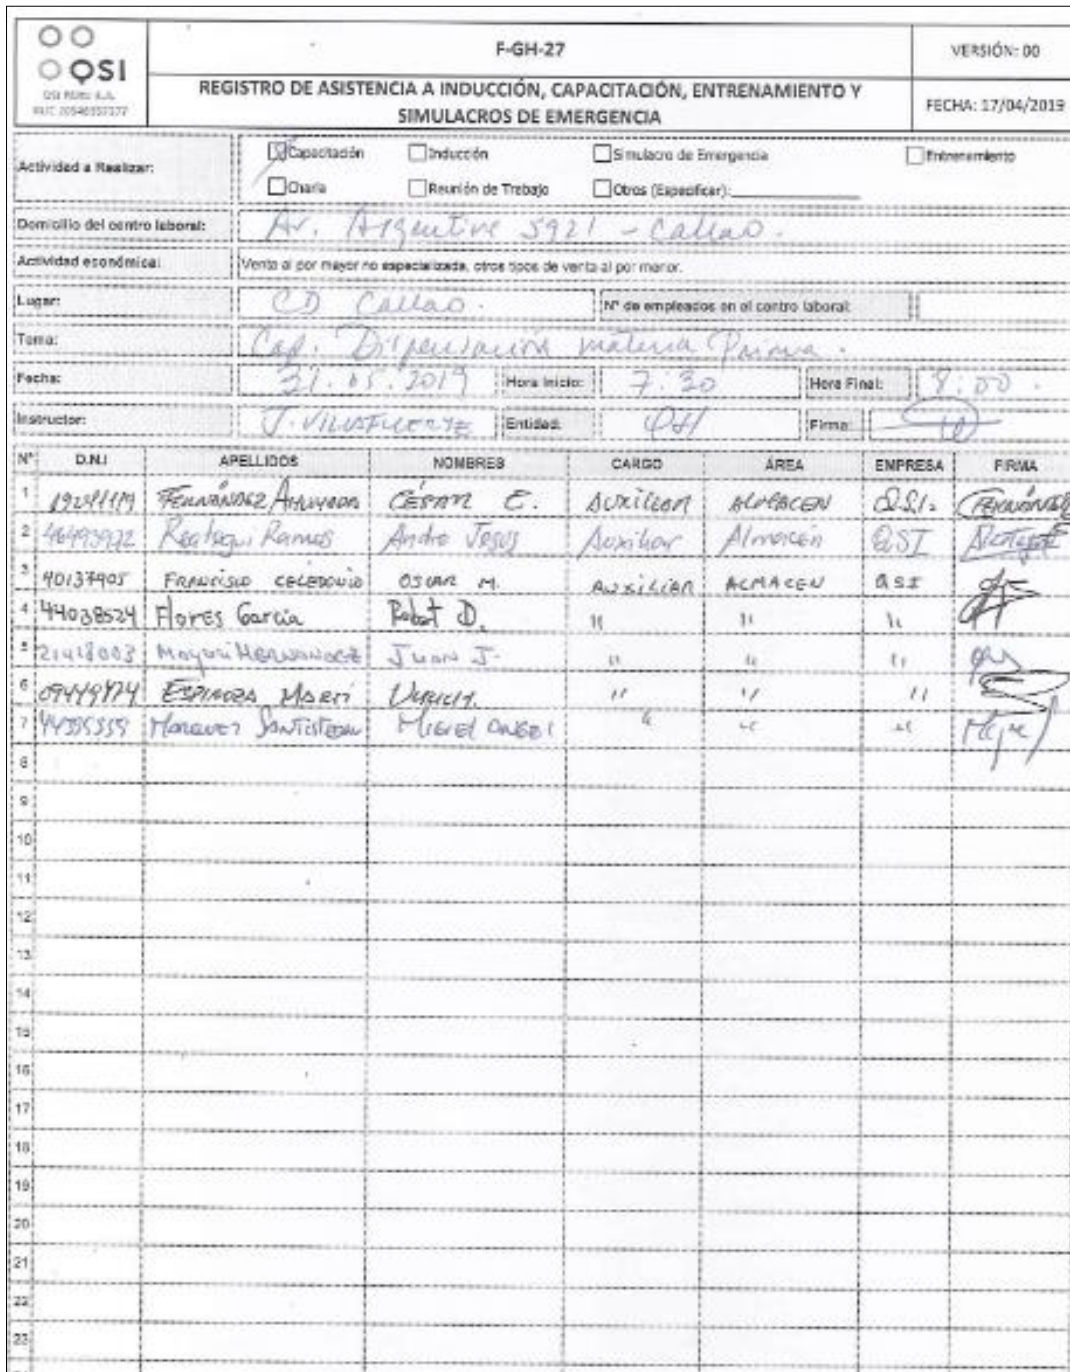 QSI
F-GH-27
VERSIÓN: 00
REGISTRO DE ASISTENCIA A INDUCCIÓN, CAPACITACIÓN, ENTRENAMIENTO Y
SIMULACROS DE EMERGENCIA
FECHA: 17/04/2019
Actividad a Realizar:
Capacitación Inducción Simulacro de Emergencia Entrenamiento
Charla Reunión de Trabajo Otros (Especificar):
Domicilio del centro laboral: Av. Argentina 5921 - Callao.
Actividad económica: Venta al por mayor no especializada, otros tipos de venta al por menor.
Lugar: CD Callao. N° de empleados en el centro laboral:
Tema: Cap. Dispensación materia Prima.
Fecha: 21.05.2019 Hora Inicio: 7:30 Hora Final: 8:00.
Instructor: J. VILLAFUERTE Entidad: Firma:
N° D.N.I APELLIDOS NOMBRES CARGO ÁREA EMPRESA FIRMA
1 FERNÁNDEZ CÉSAR E. AUXILIAR ALMACEN Q.S.I. FERNÁNDEZ
2 Reátegui Ramos Andre Jesus Auxiliar Almacén QSI
3 40137905 FRANCISCO CELEDONIO OSCAR M. AUXILIAR ALMACEN QSI
4 44038524 Flores Garcia D. " " "
5 21418003 HERNANDEZ JUAN J. " " "
6 ESPINOZA " " "
7 MARQUEZ SANTISTEBAN MIGUEL ANGEL " " "
8
9
10
11
12
13
14
15
16
17
18
19
20
21
22
23